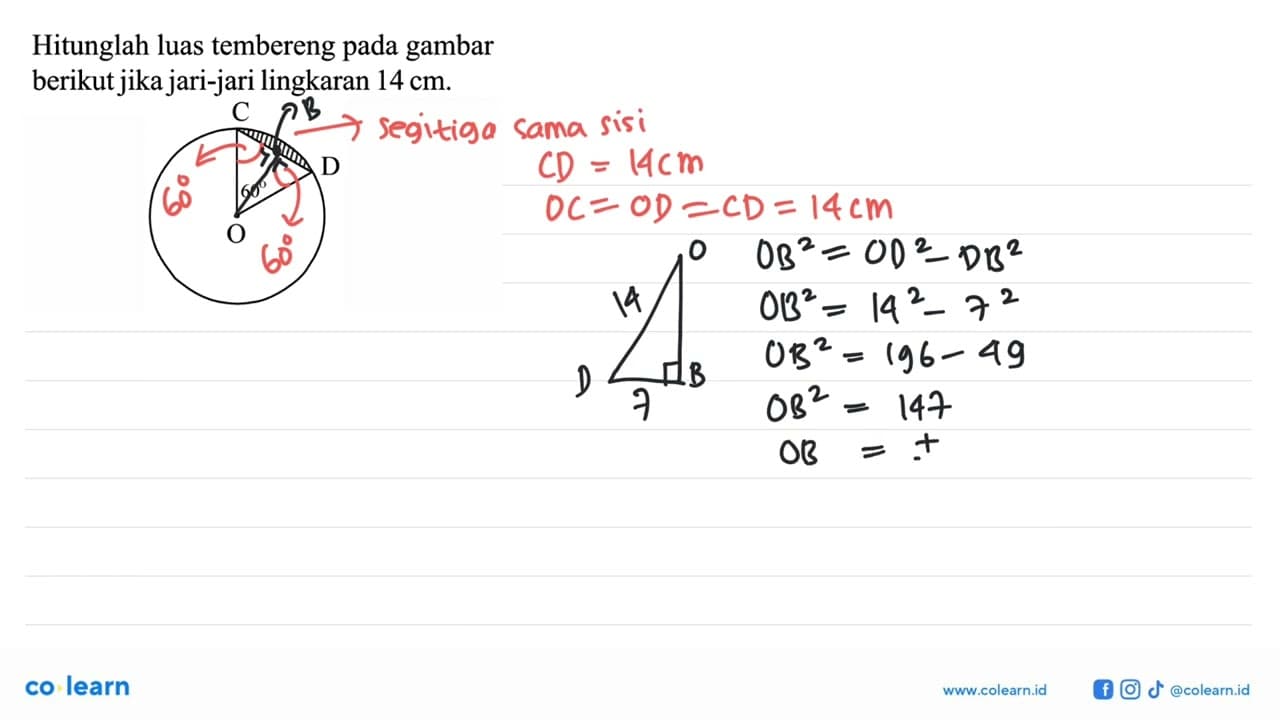 Hitunglah luas tembereng pada gambar
berikut jika jari-jari lingkaran 14 cm.
C
B
segitiga sama sisi
D
CD = 14cm
60°
60°
OC = OD = CD = 14 cm
O
60°
O
OB² = OD² - DB²
14
OB² = 14² - 7²
OB² = 196 - 49
D
B
7
OB² = 147
OB = ±
co learn
www.colearn.id
@colearn.id